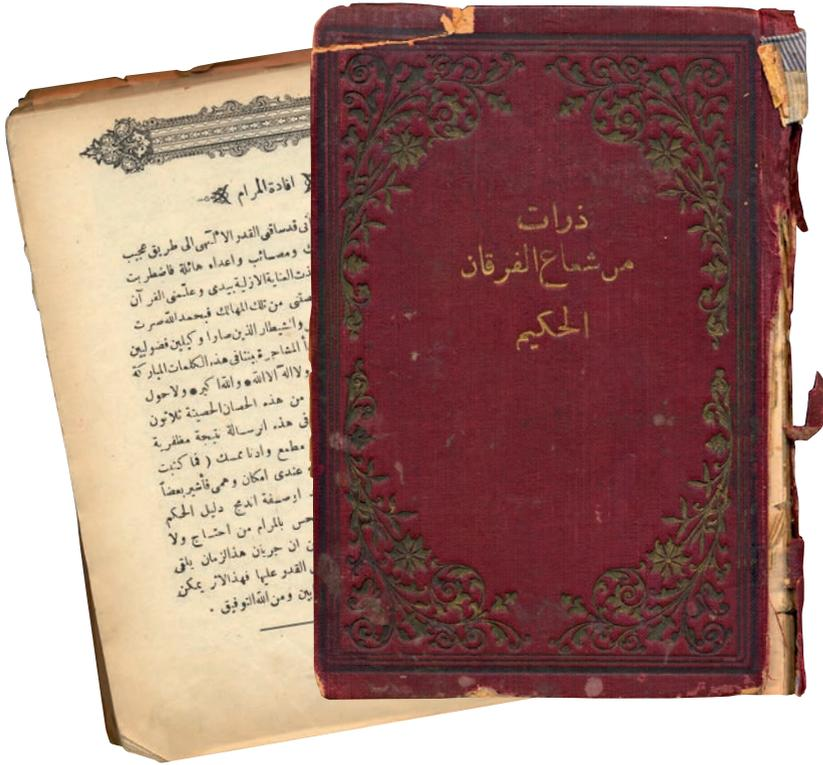 ذرات
من شعاع الفرقان
الحكيم
افادة المرام
القدر الالٓهى الى طريق عجيب
ومصائب واعداء هائلة فاضطربت
العناية الازلية بيدى وعلّمنى القرآن
من تلك المهالك فبحمد الله صرت
والشيطار الذين صارا وكيلين فضوليين
المشاجرة بيننا فى هذه الكلمات المباركة
ولا اله الا الله * والله اكبر * ولا حول
من هذه الحصان الحصينة ثلاثون
فى هذه الرسالة نتيجة مظفرية
مطمع وادنا ممسك ( فما كتبت
عندى امكان وهمى فأشير بعضاً
او صفة اندمج دليل الحكم
بالمرام من احتاج ولا
ان جريان هذا الزمان يلقى
القدر عليها فهذا الاثر يمكن
ومن الله التوفيق .